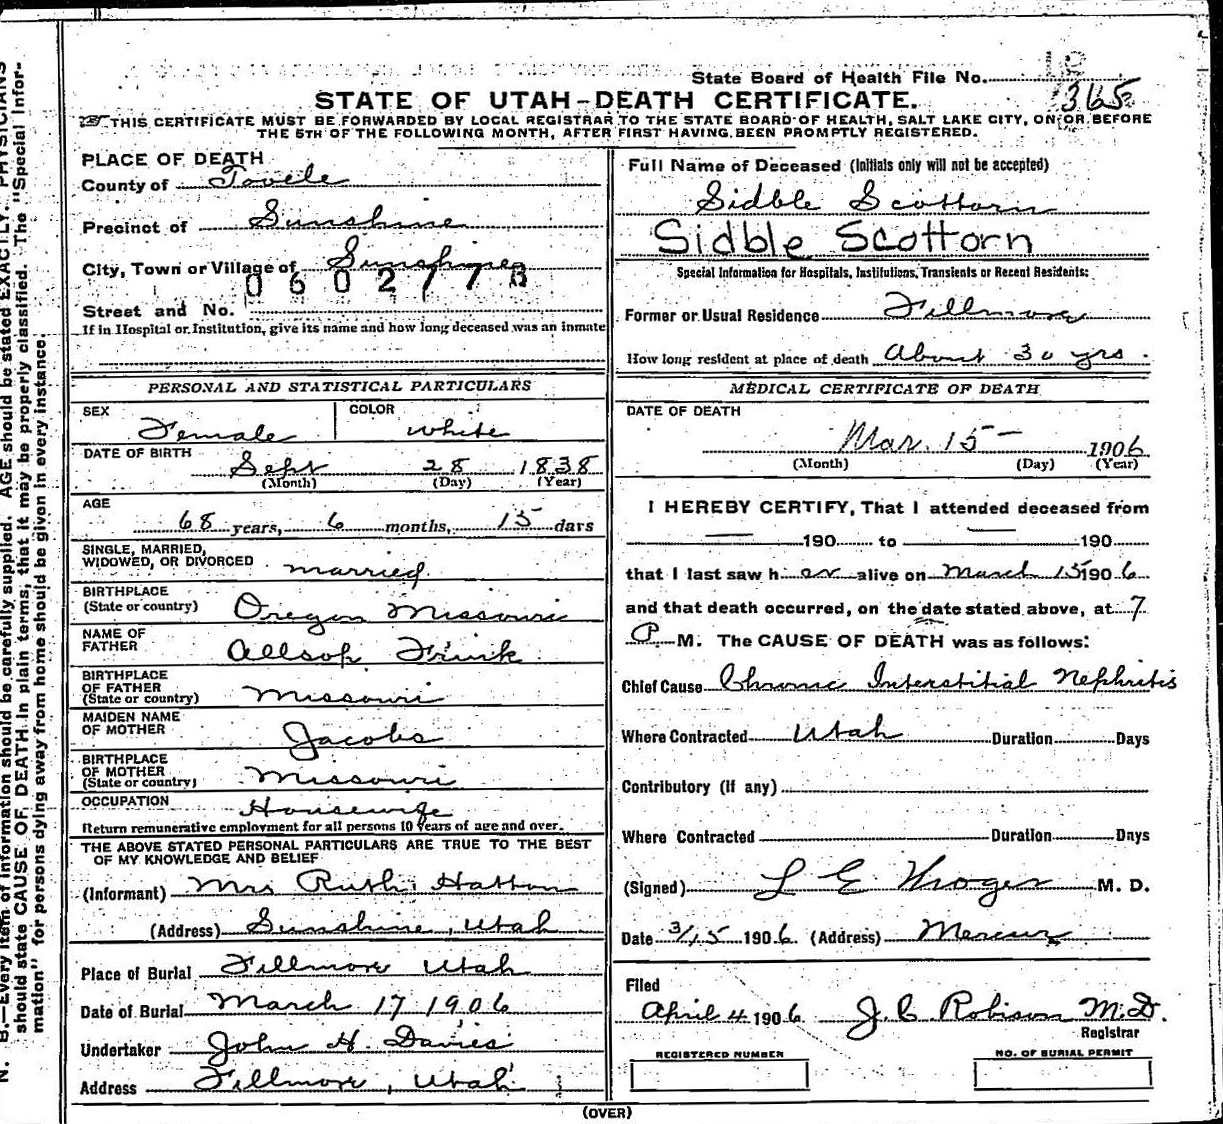 State Board of Health File No. 365
STATE OF UTAH–DEATH CERTIFICATE.
THIS CERTIFICATE MUST BE FORWARDED BY LOCAL REGISTRAR TO THE STATE BOARD OF HEALTH, SALT LAKE CITY, ON OR BEFORE
THE 5TH OF THE FOLLOWING MONTH, AFTER FIRST HAVING BEEN PROMPTLY REGISTERED.
PLACE OF DEATH
County of Tooele
Precinct of Sunshine
City, Town or Village of Sunshine
0602778
Street and No.
If in Hospital or Institution, give its name and how long deceased was an inmate
PERSONAL AND STATISTICAL PARTICULARS
SEX Female COLOR White
DATE OF BIRTH Sept 28 1838
(Month) (Day) (Year)
AGE
68 years, 6 months, 15 days
SINGLE, MARRIED,
WIDOWED, OR DIVORCED married
BIRTHPLACE
(State or country) Oregon Missouri
NAME OF
FATHER Allsop Frink
BIRTHPLACE
OF FATHER
(State or country) Missouri
MAIDEN NAME
OF MOTHER Jacobs
BIRTHPLACE
OF MOTHER
(State or country) Missouri
OCCUPATION Housewife
Return remunerative employment for all persons 10 years of age and over.
THE ABOVE STATED PERSONAL PARTICULARS ARE TRUE TO THE BEST
OF MY KNOWLEDGE AND BELIEF
(Informant) Mrs Ruth Hatton
(Address) Sunshine, Utah
Place of Burial Fillmore Utah
Date of Burial March 17 1906
Undertaker John H. Davies
Address Fillmore, Utah
Full Name of Deceased (Initials only will not be accepted)
Sidble Scottorn
Sidble Scottorn
Special Information for Hospitals, Institutions, Transients or Recent Residents:
Former or Usual Residence Fillmore
How long resident at place of death About 30 yrs.
MEDICAL CERTIFICATE OF DEATH
DATE OF DEATH
Mar. 15 1906
(Month) (Day) (Year)
I HEREBY CERTIFY, That I attended deceased from
— 190 to — 190
that I last saw h er alive on March 15 1906
and that death occurred, on the date stated above, at 7
P M. The CAUSE OF DEATH was as follows:
Chief Cause Chronic Interstitial Nephritis
Where Contracted Utah Duration Days
Contributory (If any)
Where Contracted Duration Days
(Signed) L E Kroger M. D.
Date 3/15 1906 (Address) Mercur
Filed
April 4 1906 J. C Robison M.D.
Registrar
REGISTERED NUMBER
NO. OF BURIAL PERMIT
(OVER)
N. B.—Every item of information should be carefully supplied. AGE should be stated EXACTLY. PHYSICIANS
should state CAUSE OF DEATH in plain terms, that it may be properly classified. The "Special Infor-
mation" for persons dying away from home should be given in every instance.